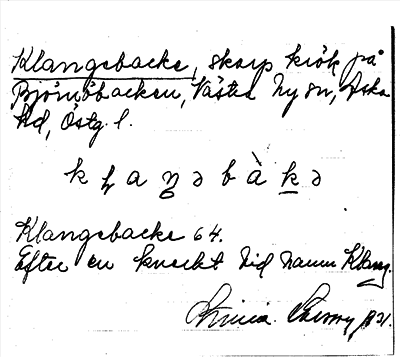 Klangebacke, skarp krök på
Björnöbacken, Västra Ny sn, Aska
hd, Östg. l.
k ḷ a ŋ ə b à k ə
Klangebacke 64.
Efter en knekt vid namn Klang.